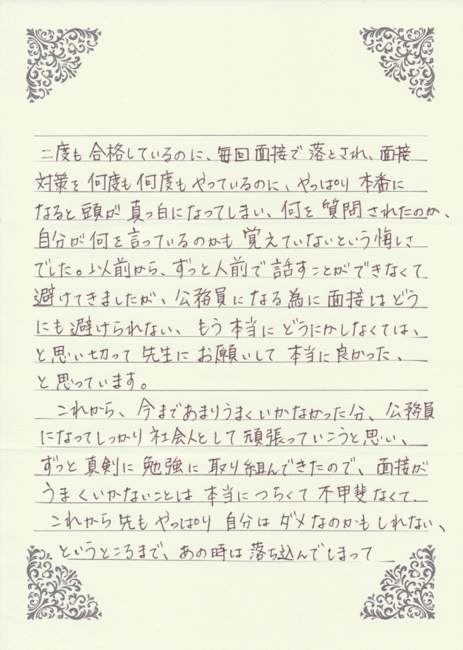 二度も合格しているのに、毎回面接で落とされ、面接
対策を何度も何度もやっているのに、やっぱり本番に
なると頭が真っ白になってしまい、何を質問されたのか、
自分が何を言っているのかも覚えていないという悔しさ
でした。以前から、ずっと人前で話すことができなくて
避けてきましたが、公務員になる為に面接はどう
にも避けられない、もう本当にどうにかしなくては、
と思い切って先生にお願いして本当に良かった、
と思っています。
これから、今まであまりうまくいかなかった分、公務員
になってしっかり社会人として頑張っていこうと思い、
ずっと真剣に勉強に取り組んできたので、面接が
うまくいかないことは本当につらくて不甲斐なくて、
これから先もやっぱり自分はダメなのかもしれない、
というところまで、あの時は落ち込んでしまって